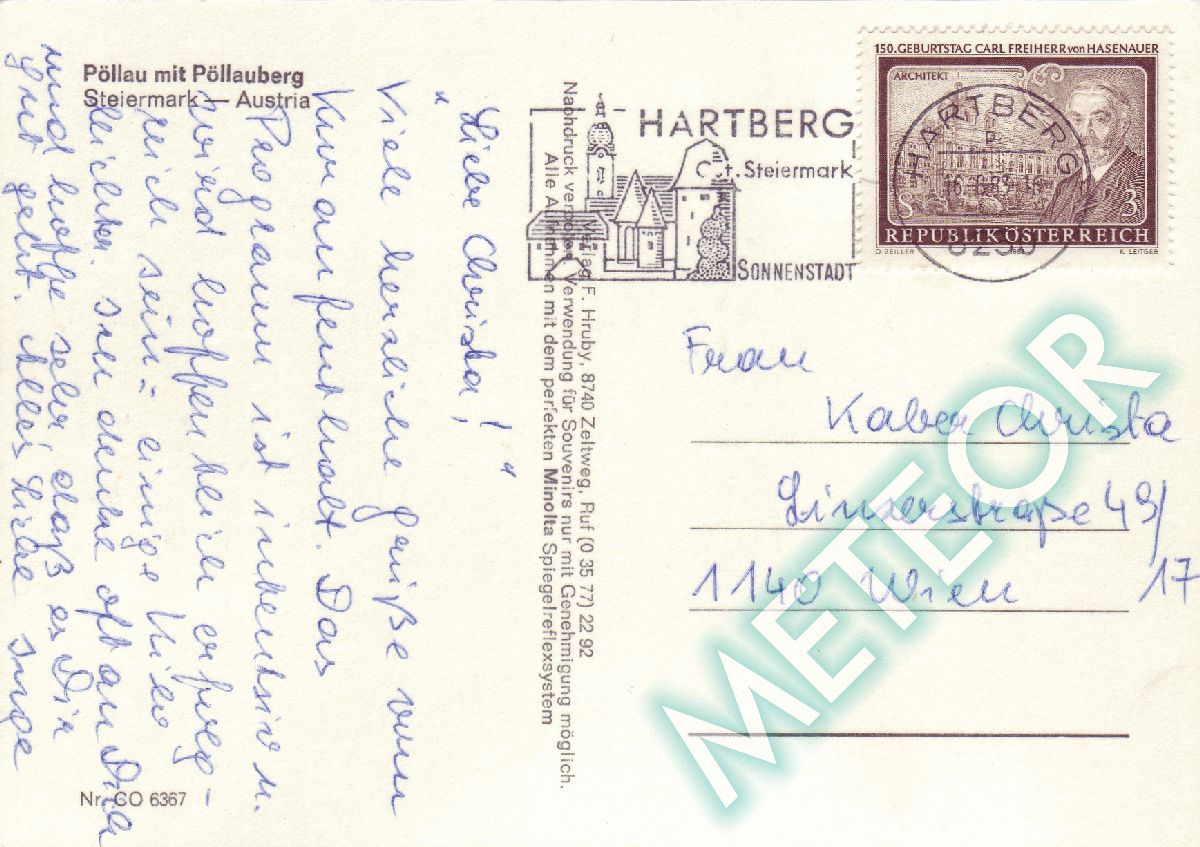 Pöllau mit Pöllauberg
Steiermark — Austria
"Liebe Christa!"
Viele herzliche Grüße vom
Kuraufenthalt. Das
Programm ist intensiv u.
wird hoffentlich erfolg-
reich sein – einige Kilo
leichter. denke oft an Dich
und hoffe sehr daß es Dir
gut geht. Alles Liebe Inge
Nr. CO 6367
Verlag F. Hruby, 8740 Zeltweg, Ruf (0 35 77) 22 92
Nachdruck verboten. Verwendung für Souvenirs nur mit Genehmigung möglich.
Alle Aufnahmen mit dem perfekten Minolta Spiegelreflexsystem
HARTBERG
Steiermark
SONNENSTADT
150. GEBURTSTAG CARL FREIHERR von HASENAUER
ARCHITEKT
HARTBERG
S 3
REPUBLIK ÖSTERREICH
O. ZEILLER K. LEITGEB
Frau
Kaber Christa
Linzerstraße 49/
1140 Wien 17
METEOR